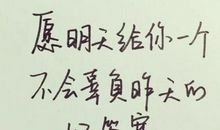 愿明天给你一个
不会辜负昨天的